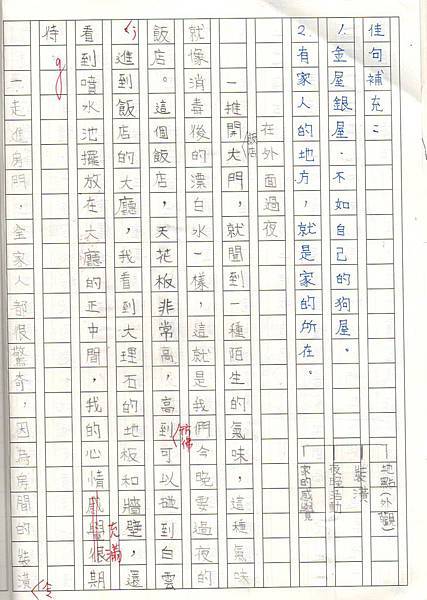 佳句補充：
1.金屋銀屋，不如自己的狗屋。
2.有家人的地方，就是家的所在。
地點(外觀)
裝潢
夜晚活動
家的感覺
在外面過夜
一推開飯店大門，就聞到一種陌生的氣味，這種氣味
就像消毒後的漂白水一樣，這就是我們今晚要過夜的
飯店。這個飯店，天花板非常高，高到彷彿可以碰到白雲
，進到飯店的大廳，我看到大理石的地板和牆壁，還
看到噴水池擺放在大廳的正中間，我的心情感覺很充滿期
待。
一走進房門，全家人都很驚奇，因為房間的裝潢